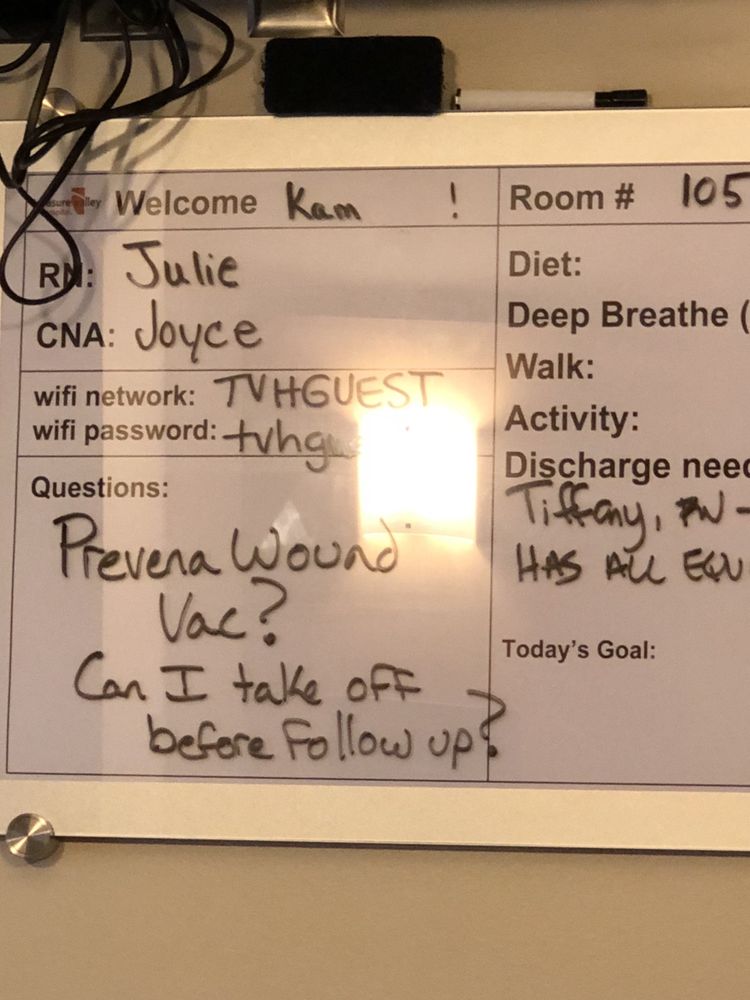 Welcome Kam !
RN: Julie
CNA: Joyce
wifi network: TVHGUEST
wifi password:
Questions:
Prevena Wound
Vac?
Can I take off
before Follow up?
Room # 105
Diet:
Deep Breathe (
Walk:
Activity:
Discharge
Tiffany, RN -
HAS ALL
Today's Goal: